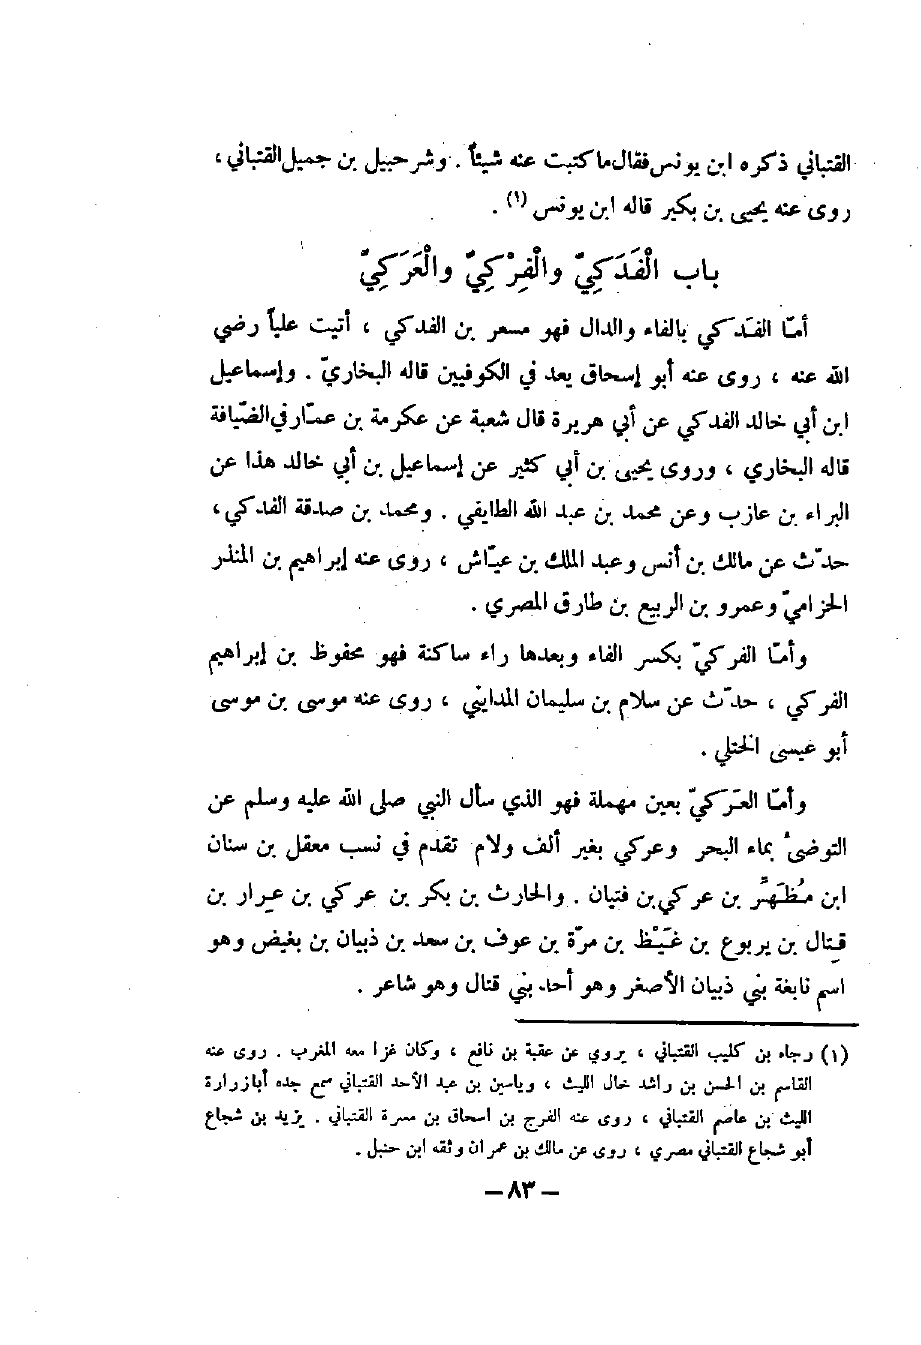 القتباني ذكره ابن يونس فقال ما كتبت عنه شيئاً . وشرحبيل بن جميل القتباني ،
روى عنه يحيى بن بكير قاله ابن يونس (١) .
باب الْفَدَكِيّ والْفِرْكِيّ والْعَرَكِيّ
أمّا الفَدكي بالفاء والدال فهو مسعر بن الفدكي ، أتيت علياً رضي
الله عنه ، روى عنه أبو إسحاق يعد في الكوفيين قاله البخاريّ . وإسماعيل
ابن أبي خالد الفدكي عن أبي هريرة قال شعبة عن عكرمة بن عمّار في الضّيافة
قاله البخاري ، وروى يحيى بن أبي كثير عن إسماعيل بن أبي خالد هذا عن
البراء بن عازب وعن محمد بن عبد الله الطايفي . ومحمد بن صدقة الفدكي ،
حدّث عن مالك بن أنس وعبد الملك بن عيّاش ، روى عنه إبراهيم بن المنذر
الحزاميّ وعمرو بن الربيع بن طارق المصري .
وأمّا الفركيّ بكسر الفاء وبعدها راء ساكنة فهو محفوظ بن إبراهيم
الفركي ، حدّث عن سلام بن سليمان المدايني ، روى عنه موسى بن موسى
أبو عيسى الختلي .
وأمّا العَرَكيّ بعين مهملة فهو الذي سأل النبي صلى الله عليه وسلم عن
التوضئ بماء البحر وعركي بغير ألف ولام تقدم في نسب معقل بن سنان
ابن مُظَهِّر بن عركي بن فتيان . والحارث بن بكر بن عركي بن عرار بن
قتال بن يربوع بن غَيْظ بن مرّة بن عوف بن سعد بن ذبيان بن بغيض وهو
اسم نابغة بني ذبيان الأصغر وهو أحد بني قتال وهو شاعر .
(١) رجاء بن كليب القتباني ، يروي عن عقبة بن نافع ، وكان غزا معه المغرب . روى عنه
القاسم بن الحسن بن راشد خال الليث ، وياسين بن عبد الأحد القتباني سمع جده أبا زرارة
الليث بن عاصم القتباني ، روى عنه الفرج بن اسحاق بن مسرة القتباني . يزيد بن شجاع
أبو شجاع القتباني مصري ، روى عن مالك بن عمران وثقه ابن حنبل .
– ٨٣ –